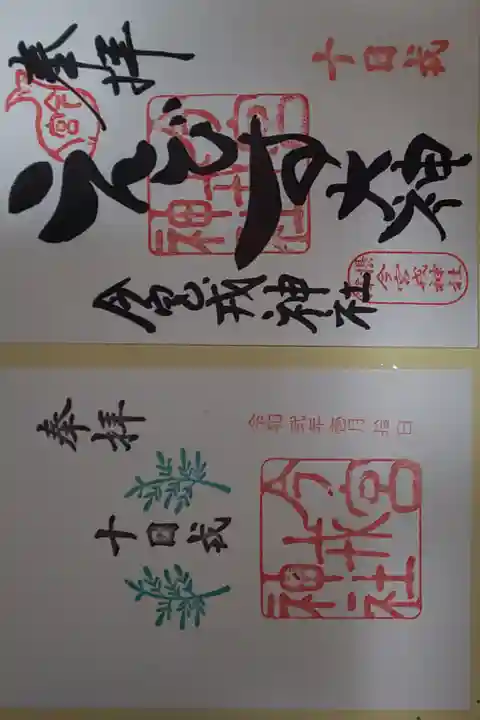 十日戎
奉拝
えびす大神
今宮戎神社
今宮戎神社
今宮戎神社
奉拝
十日戎
令和弐年壱月拾日
今宮戎神社